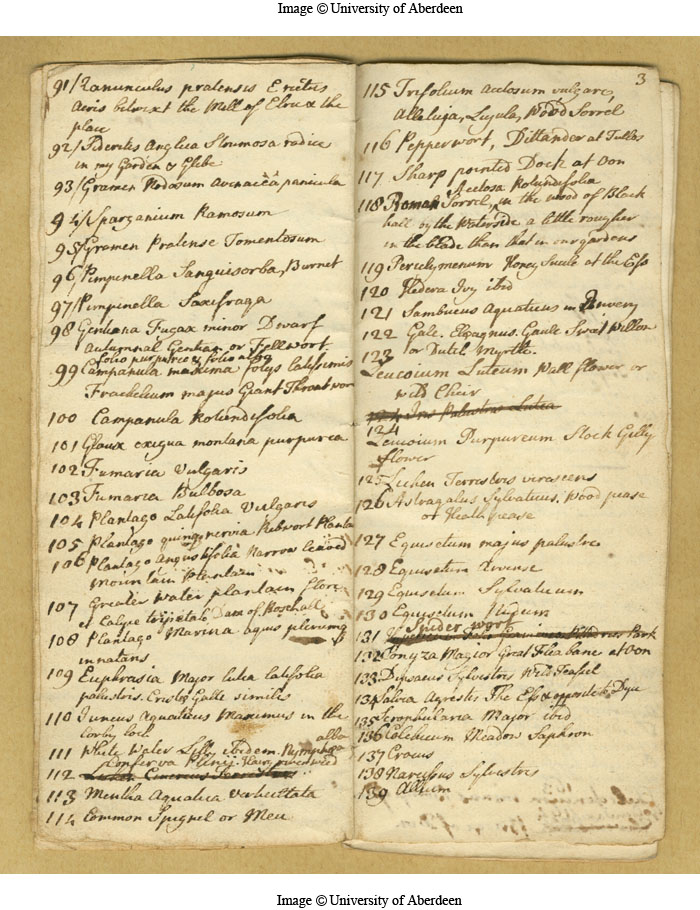 Image © University of Aberdeen
91/ Ranunculus pratensis Erectus
Acris betwixt the Mill of Elru & the
place
92/ Siderites Anglica Strumosa radice
in my Garden & Glebe
93/ Gramen Nodosum Avenacea panicula
94/ Sparganium Ramosum
95/ Gramen Pratense Tomentosum
96/ Pimpinella Sanguisorba, Burnet
97/ Pimpinella Saxifraga
98 Gentiana Fugax minor Dwarf
Autumnal Gentian or Fellwort
folio purpureo & folio albo
99 Campanula maxima folys latissimis
Trachelium majus Giant Throatwort
100 Campanula Rotundifolia
101 Glaux exigua montana purpurea
102 Fumaria Vulgaris
103 Fumaria Bulbosa
104 Plantago Latifolia Vulgaris
105 Plantago quinqnervia Ribwort Planta
106 Plantago Angustifolia Narrow leaved
mountain Plantain
107 Greater water plantain flore
et Calyce Dam of
108 Plantago Marina aquis plerumq
innatans
109 Euphrasia Major lutea latifolia
palustris. Cristæ Galli similis
110 Juncus Aquaticus Maximus in the
Corby loch
alba
111 White Water Lilly ibidem. Nymphæa
Conferva Plinij. Hairy riverweed
112
113 Mentha Aquatica Verticillata
114 Common Spignel or Meu
3
115 Trifolium Acetosum vulgare,
Alleluja, Lujula, Wood Sorrel
116 Pepperwort, Dittander at Fullas
117 Sharp pointed Dock at Don
Acetosa Rotundifolia
118 Roman Sorrel, in the wood of Black
hall by the Waterside a little rougher
in the blade than that in our gardens
119 Periclymenum Honey Sucle at the Ess
120 Hedera Ivy ibid
121 Sambucus Aquaticus in
122 Gale. Elæagnus. Gaule Sweet Willow
or Dutch Myrtle.
123
Leucoium Luteum Wall flower or
wild Cheir
124 Iris Palustris Lutea
124
Leucoium Purpureum Stock Gilly
flower
125 Lichen Terrestris virescens
126 Astragalus Sylvaticus. Wood pease
or Heath pease
127 Equisetum majus palustre
128 Equisetum Arvense
129 Equisetum Sylvaticum
130 Equisetum
Spider wort
131 Park
132 Conyza Major Great Flea bane at Don
133 Dipsacus Sylvestris Wild Teasel
134 Salvia Agrestis The Ess & opposite to Dyce
135 Scrophularia Major ibid
136 Colchicum Meadow Saphron
137 Crocus
138 Narcissus Sylvestris
139 Allium
Image © University of Aberdeen